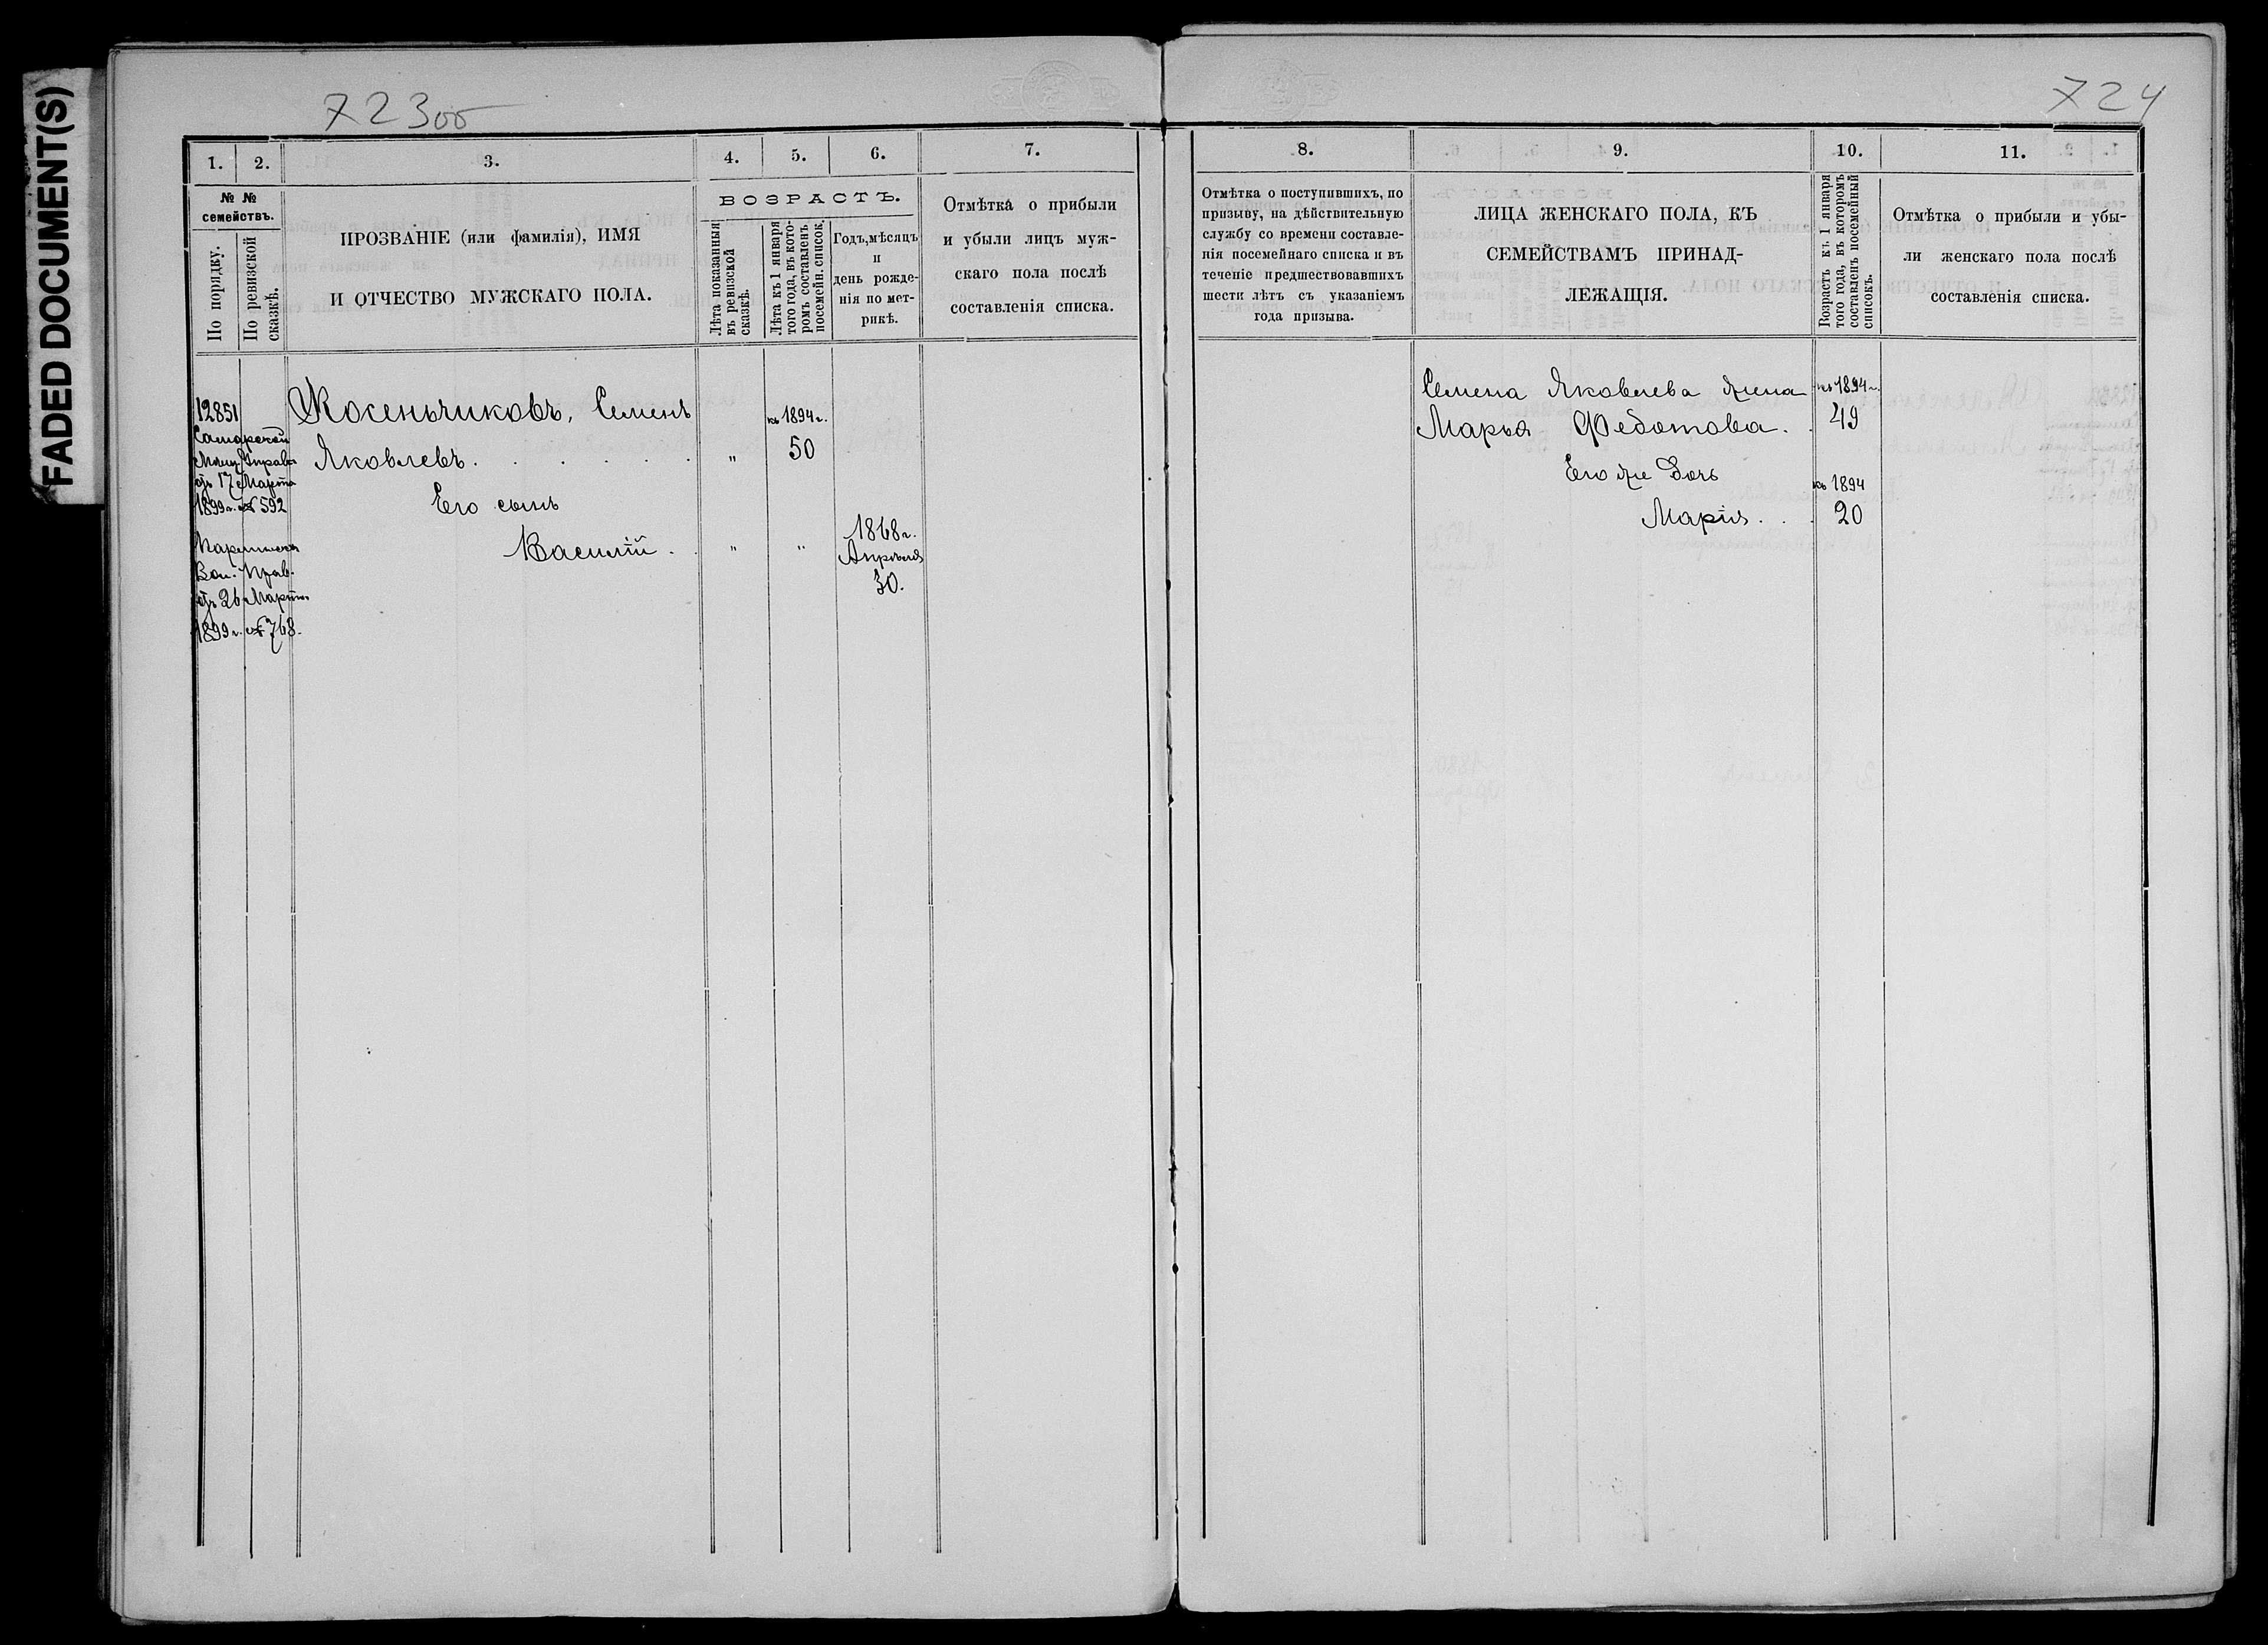 FADED DOCUMENT(S)
723об
724
1.
2.
3.
4.
5.
6.
7.
№ №
семействъ.
По порядку.
По ревизской
сказкѣ.
ПРОЗВАНІЕ (или фамилія), ИМЯ
И ОТЧЕСТВО МУЖСКАГО ПОЛА.
ВОЗРАСТЪ.
Лѣта показанныя
въ ревизской
сказкѣ.
Лѣта къ 1 января
того года, въ кото-
ромъ составленъ
посемейн. список.
Годъ, мѣсяцъ
и
день рожде-
нія по мет-
рикѣ.
Отмѣтка о прибыли
и убыли лицъ муж-
скаго пола послѣ
составленія списка.
12851
Самарской
Мѣщ. Управы
отъ 17 Марта
1899 г. № 592
Вол. Прав.
отъ 26 Марта
1899 г. № 768.
Косеньчиковъ, Семенъ
Яковлевъ.
"
къ 1894 г.
50
Его сынъ
Василій.
"
"
1868 г.
Апрѣля
30.
8.
9.
10.
11.
Отмѣтка о поступившихъ, по
призыву, на дѣйствительную
службу со времени составле-
нія посемейнаго списка и въ
теченіе предшествовавшихъ
шести лѣтъ съ указаніемъ
года призыва.
ЛИЦА ЖЕНСКАГО ПОЛА, КЪ
СЕМЕЙСТВАМЪ ПРИНАД-
ЛЕЖАЩІЯ.
Возрастъ къ 1 января
того года, въ которомъ
составленъ посемейный
списокъ.
Отмѣтка о прибыли и убы-
ли женскаго пола послѣ
составленія списка.
Семена Яковлева жена
Марья Федотова.
къ 1894 г.
49
Его же дочь
Марія.
къ 1894
20